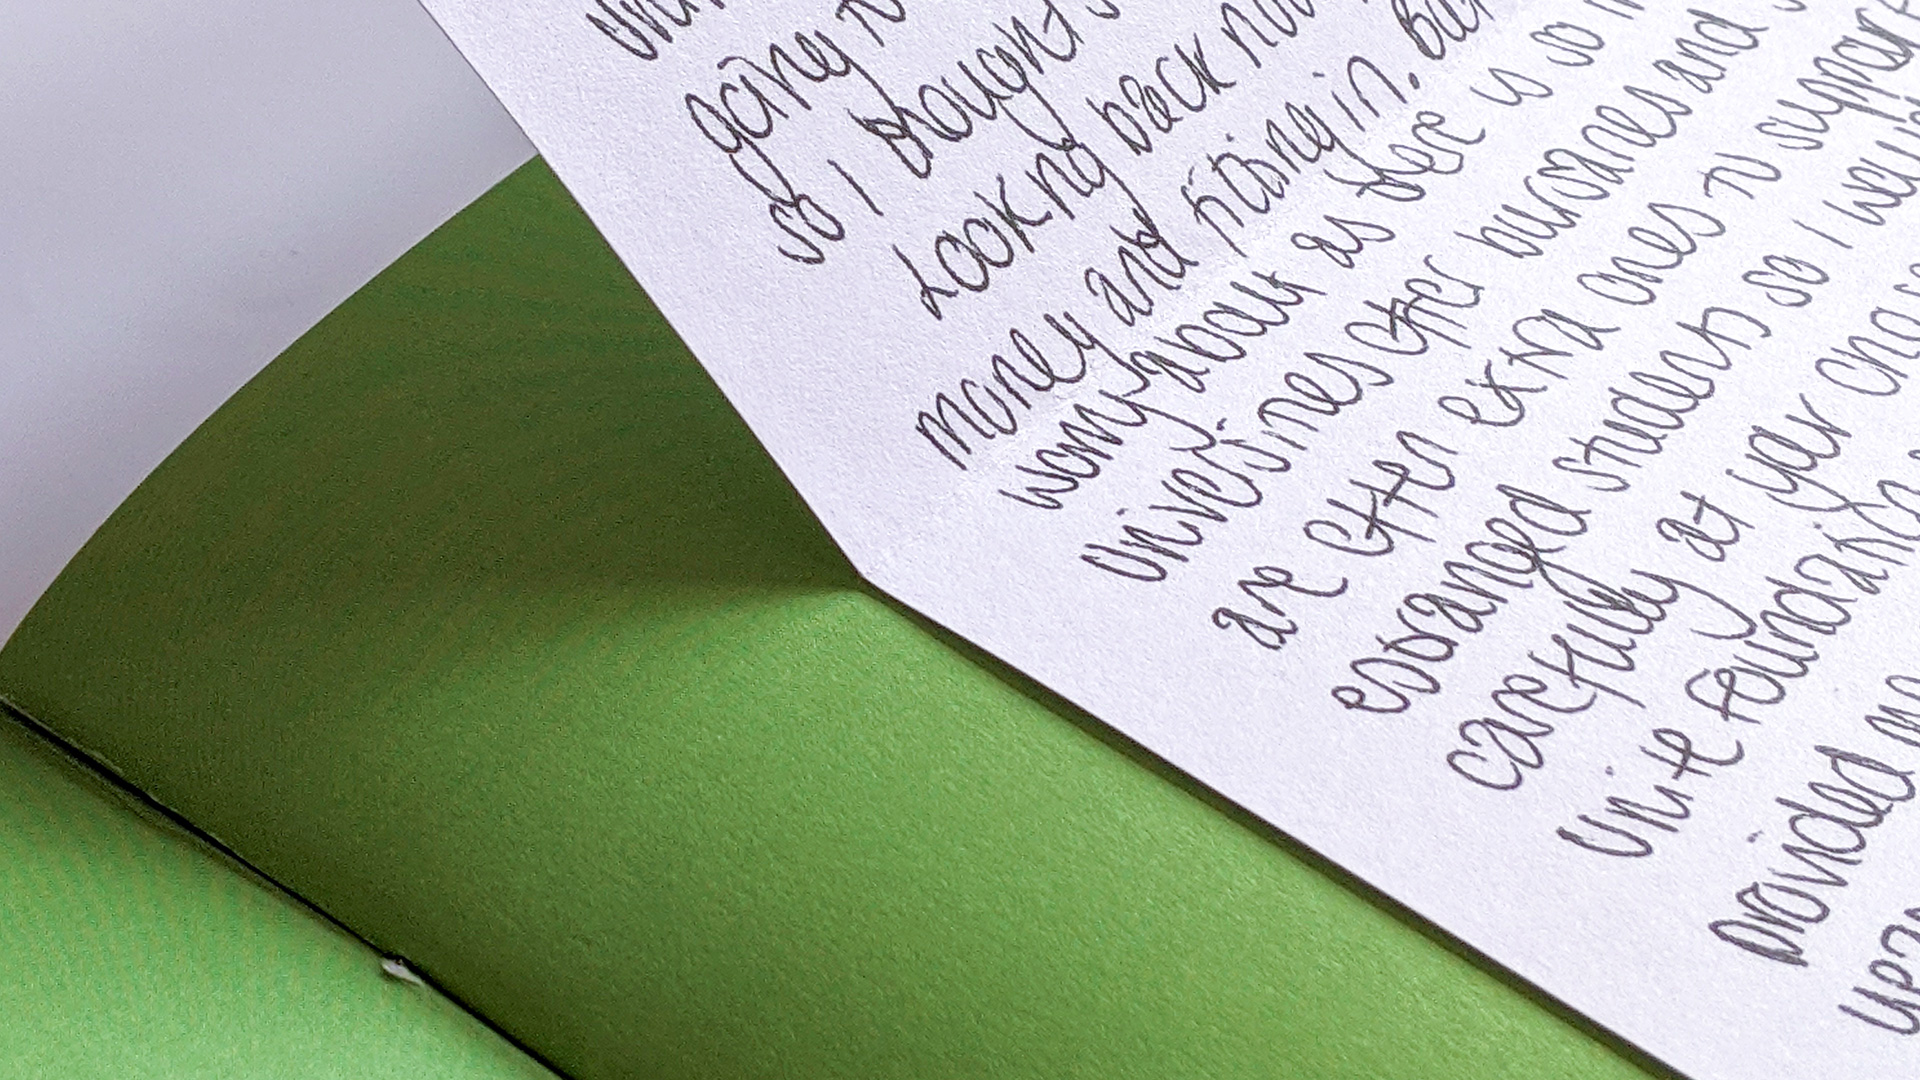 going to
so I thought
Looking back now
money and fitting in. But
worry about as there is so
universities offer bursaries and
are often extra ones to support
estranged students so I wou
carefully at your
Unite foundation
provided me
year